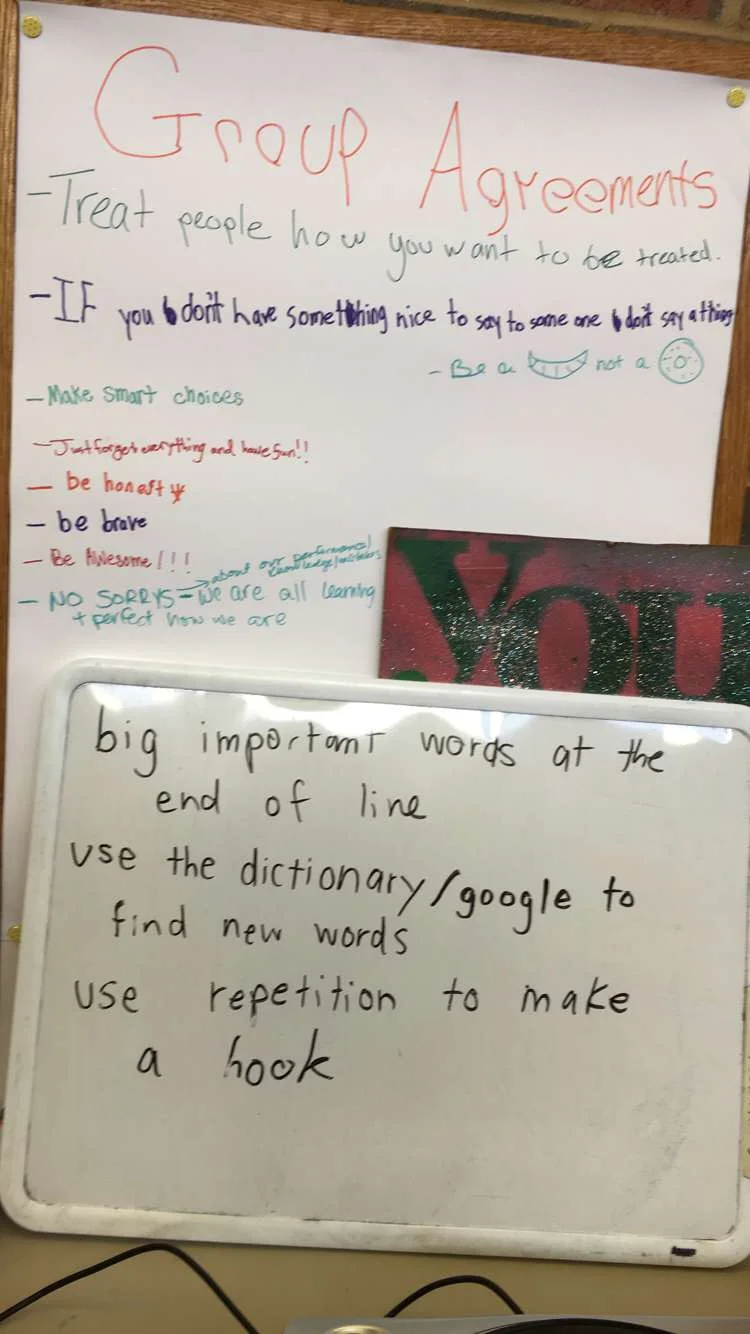 Group Agreements
- Treat people how you want to be treated.
- IF you don't have something nice to say to some one don't say a thing
- Be a not a
- Make smart choices
- Just forget everything and have fun!!
- be honest
- be brave
- Be Awesome!!!
about our performance/
knowledge/mistakes
- NO SORRYS = We are all learning
+ perfect how we are
You
big important words at the
end of line
use the dictionary/google to
find new words
use repetition to make
a hook